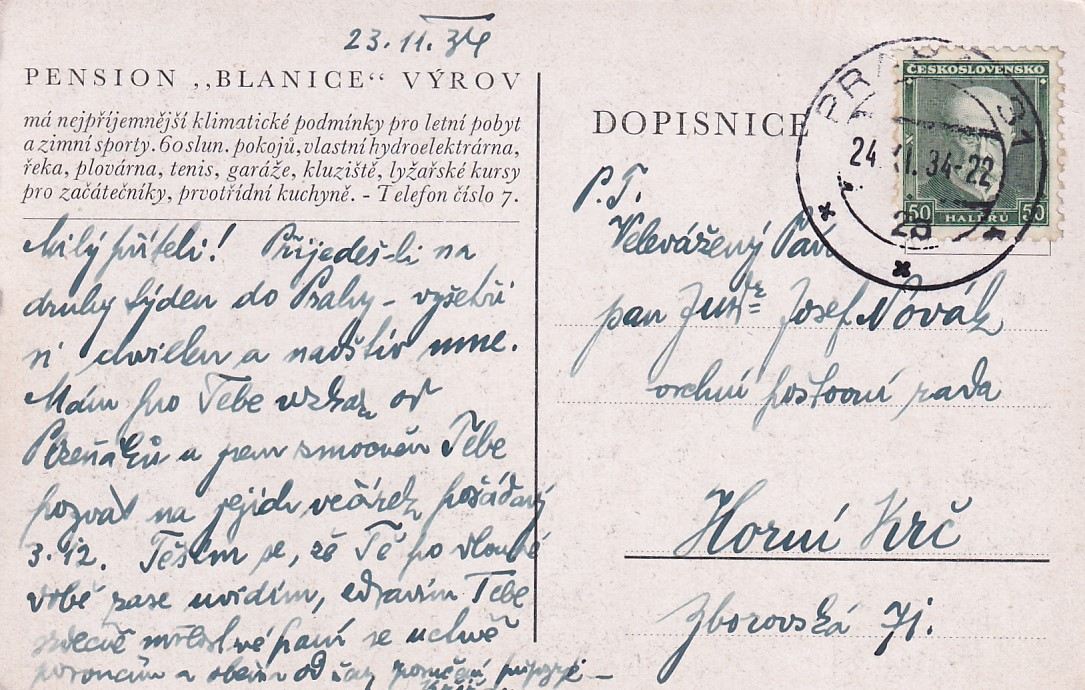 23.11.34
PENSION „BLANICE“ VÝROV
má nejpříjemnější klimatické podmínky pro letní pobyt
a zimní sporty. 60 slun. pokojů, vlastní hydroelektrárna,
řeka, plovárna, tenis, garáže, kluziště, lyžařské kursy
pro začátečníky, prvotřídní kuchyně. - Telefon číslo 7.
Milý příteli! Přijedeš-li na
druhý týden do Prahy - vyšetři
si chvilku a navštiv mne.
Mám pro Tebe vzkaz od
Plzeňáků a jsem zmocněn Tebe
pozvat na jejich večírek pořádaný
3.12. Těším se, že Tě po dlouhé
době zase uvidím, zdravím Tebe
srdečně milostivé paní se uctivě
poroučím a oběma od
DOPISNICE
PRAHA 31
24.XI.34-22
28
ČESKOSLOVENSKO
50 HALÉŘŮ 50
P.T.
Velevážený Pán
pan JUDr Josef Novák
vrchní poštovní rada
Horní Krč
Zborovská 71.